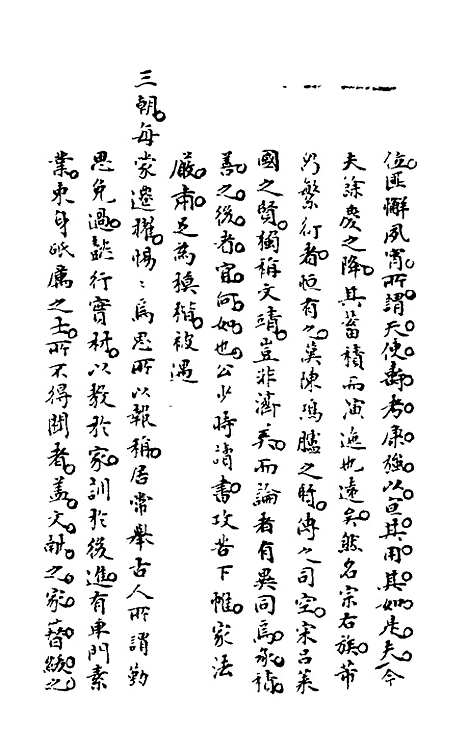 位匪懈夙宵所謂天使壽考康強以宣其用其如是夫今
夫餘慶之降其蓄積而演迤也遠矣然名宗右族苐
乃繁衍者恒有之莫陳瑀臚之時傳之司空宋呂萊
國之賢獨稱文靖豈非濟美而論者有異同焉承禱
善之後者宜何如也公少時讀書攻苦下帷家法
嚴肅足為模楷被遇
三朝每蒙遷擢惕惕焉思所以報稱居常舉古人所謂勤
思免過懿行實秝以教於家訓於後進有東門素
業束身砥厲之士所不得聞者蓋文獻之家簪紱之